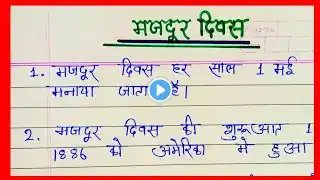 मजदूर दिवस
1. मजदूर दिवस हर साल 1 मई
मनाया जाता है।
2. मजदूर दिवस की शुरूआत 1
1886 को अमेरिका मे हुआ